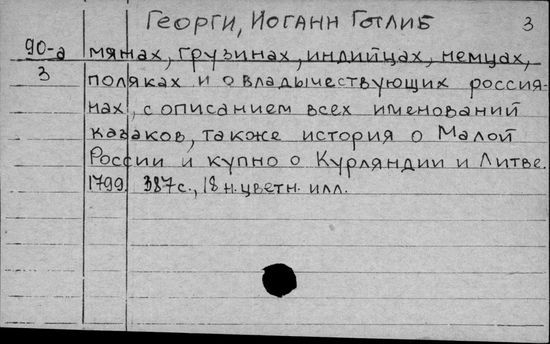 Георги, Иоганн Готлиб 3
90-а мянах, грузинах, индийцах, немцах,
3 поляках и о владычествующих россия-
нах, с описанием всех именований
казаков, также история о Малой
России и купно о Курляндии и Литве.
1799. 387с., 18 н. цветн. илл.